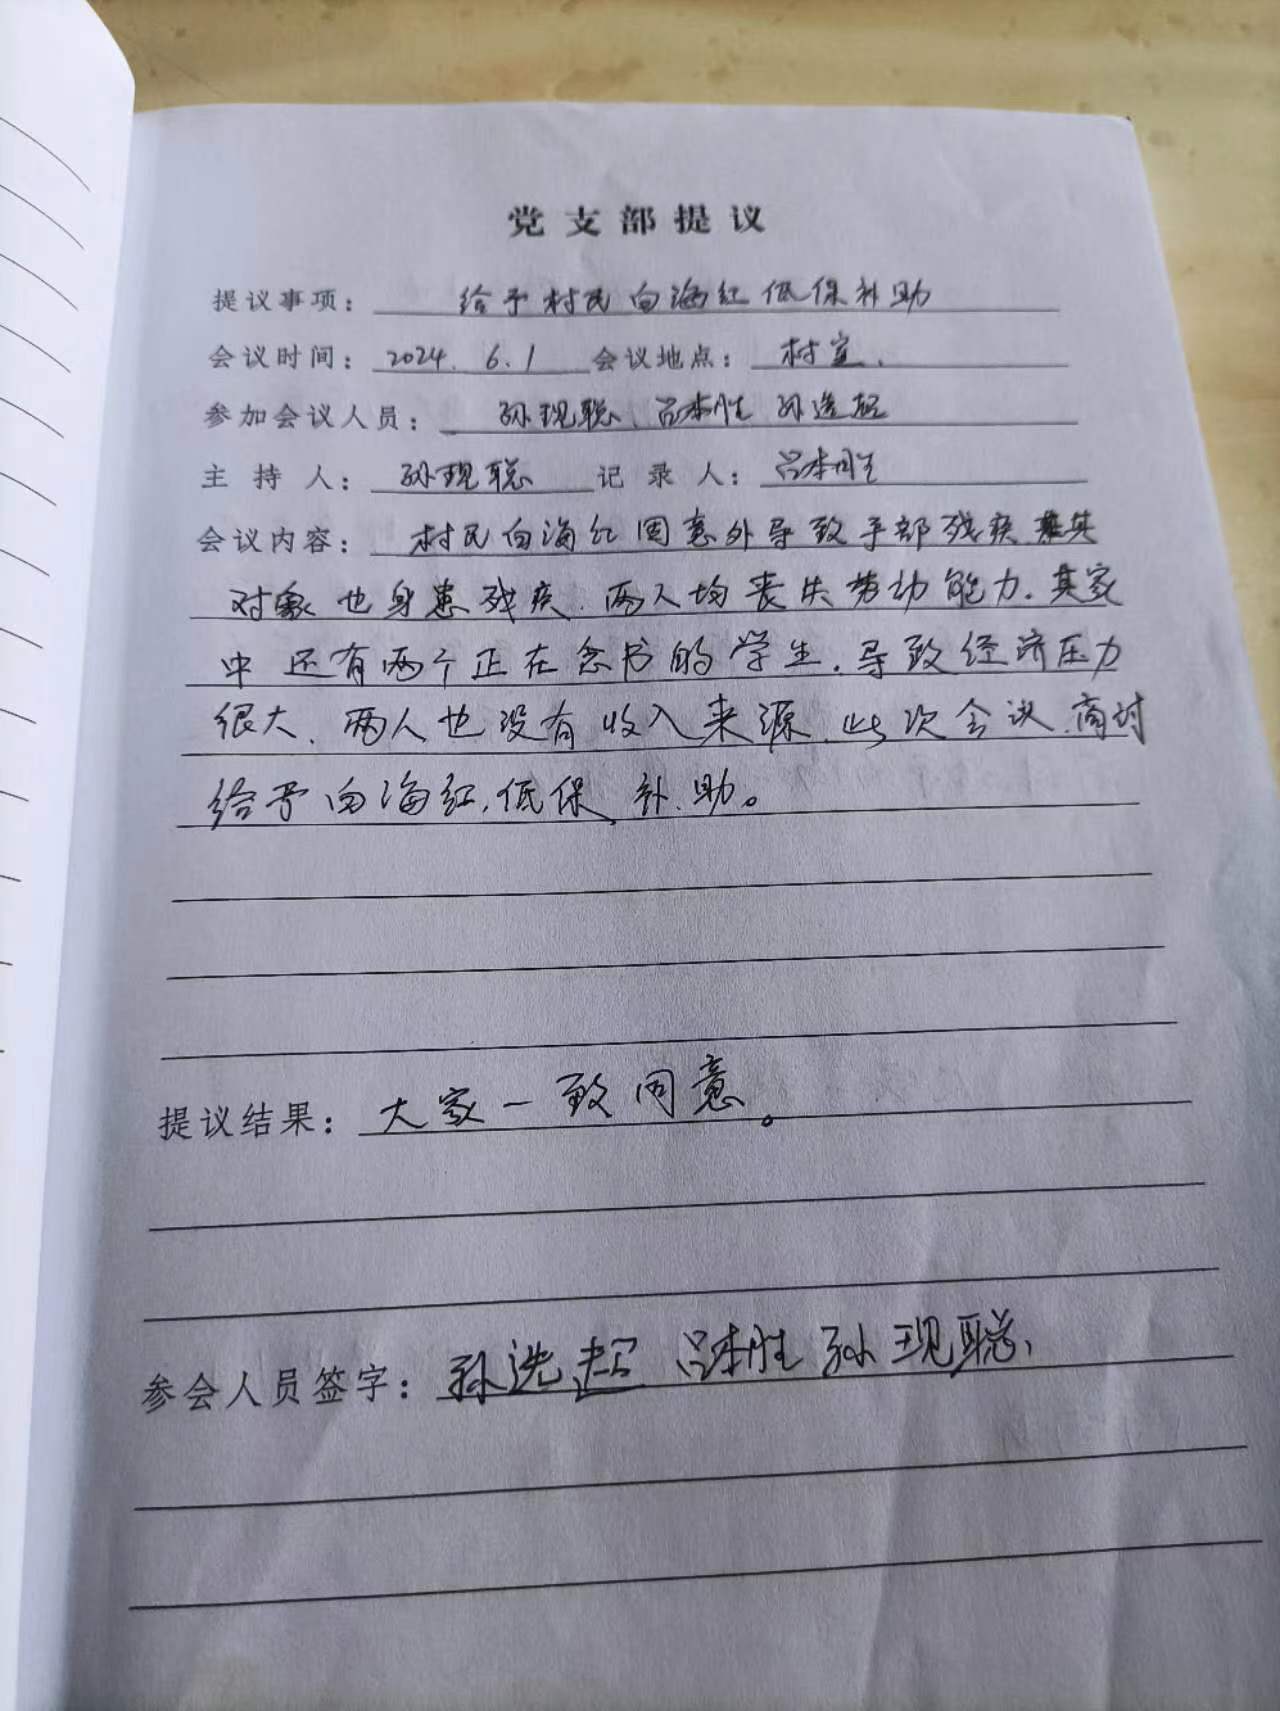 党支部提议
提议事项：给予村民向海红低保补助
会议时间：2024.6.1 会议地点：村室.
参加会议人员：孙现聪、吕本胜 孙选超
主持人：孙现聪 记录人：吕本胜
会议内容：村民向海红因意外导致手部残疾 其
对象也身患残疾.两人均丧失劳动能力.其家
中还有两个正在念书的学生.导致经济压力
很大、两人也没有收入来源.此次会议.商讨
给予向海红.低保.补.助。
提议结果：大家一致同意。
参会人员签字：孙选超 吕本胜 孙现聪、